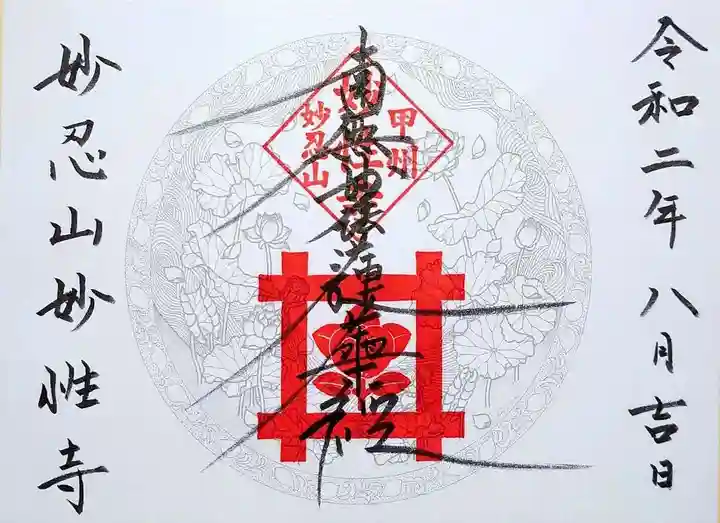 令和二年 八月吉日
南無妙法蓮華経
甲州
妙忍山
妙忍山妙性寺